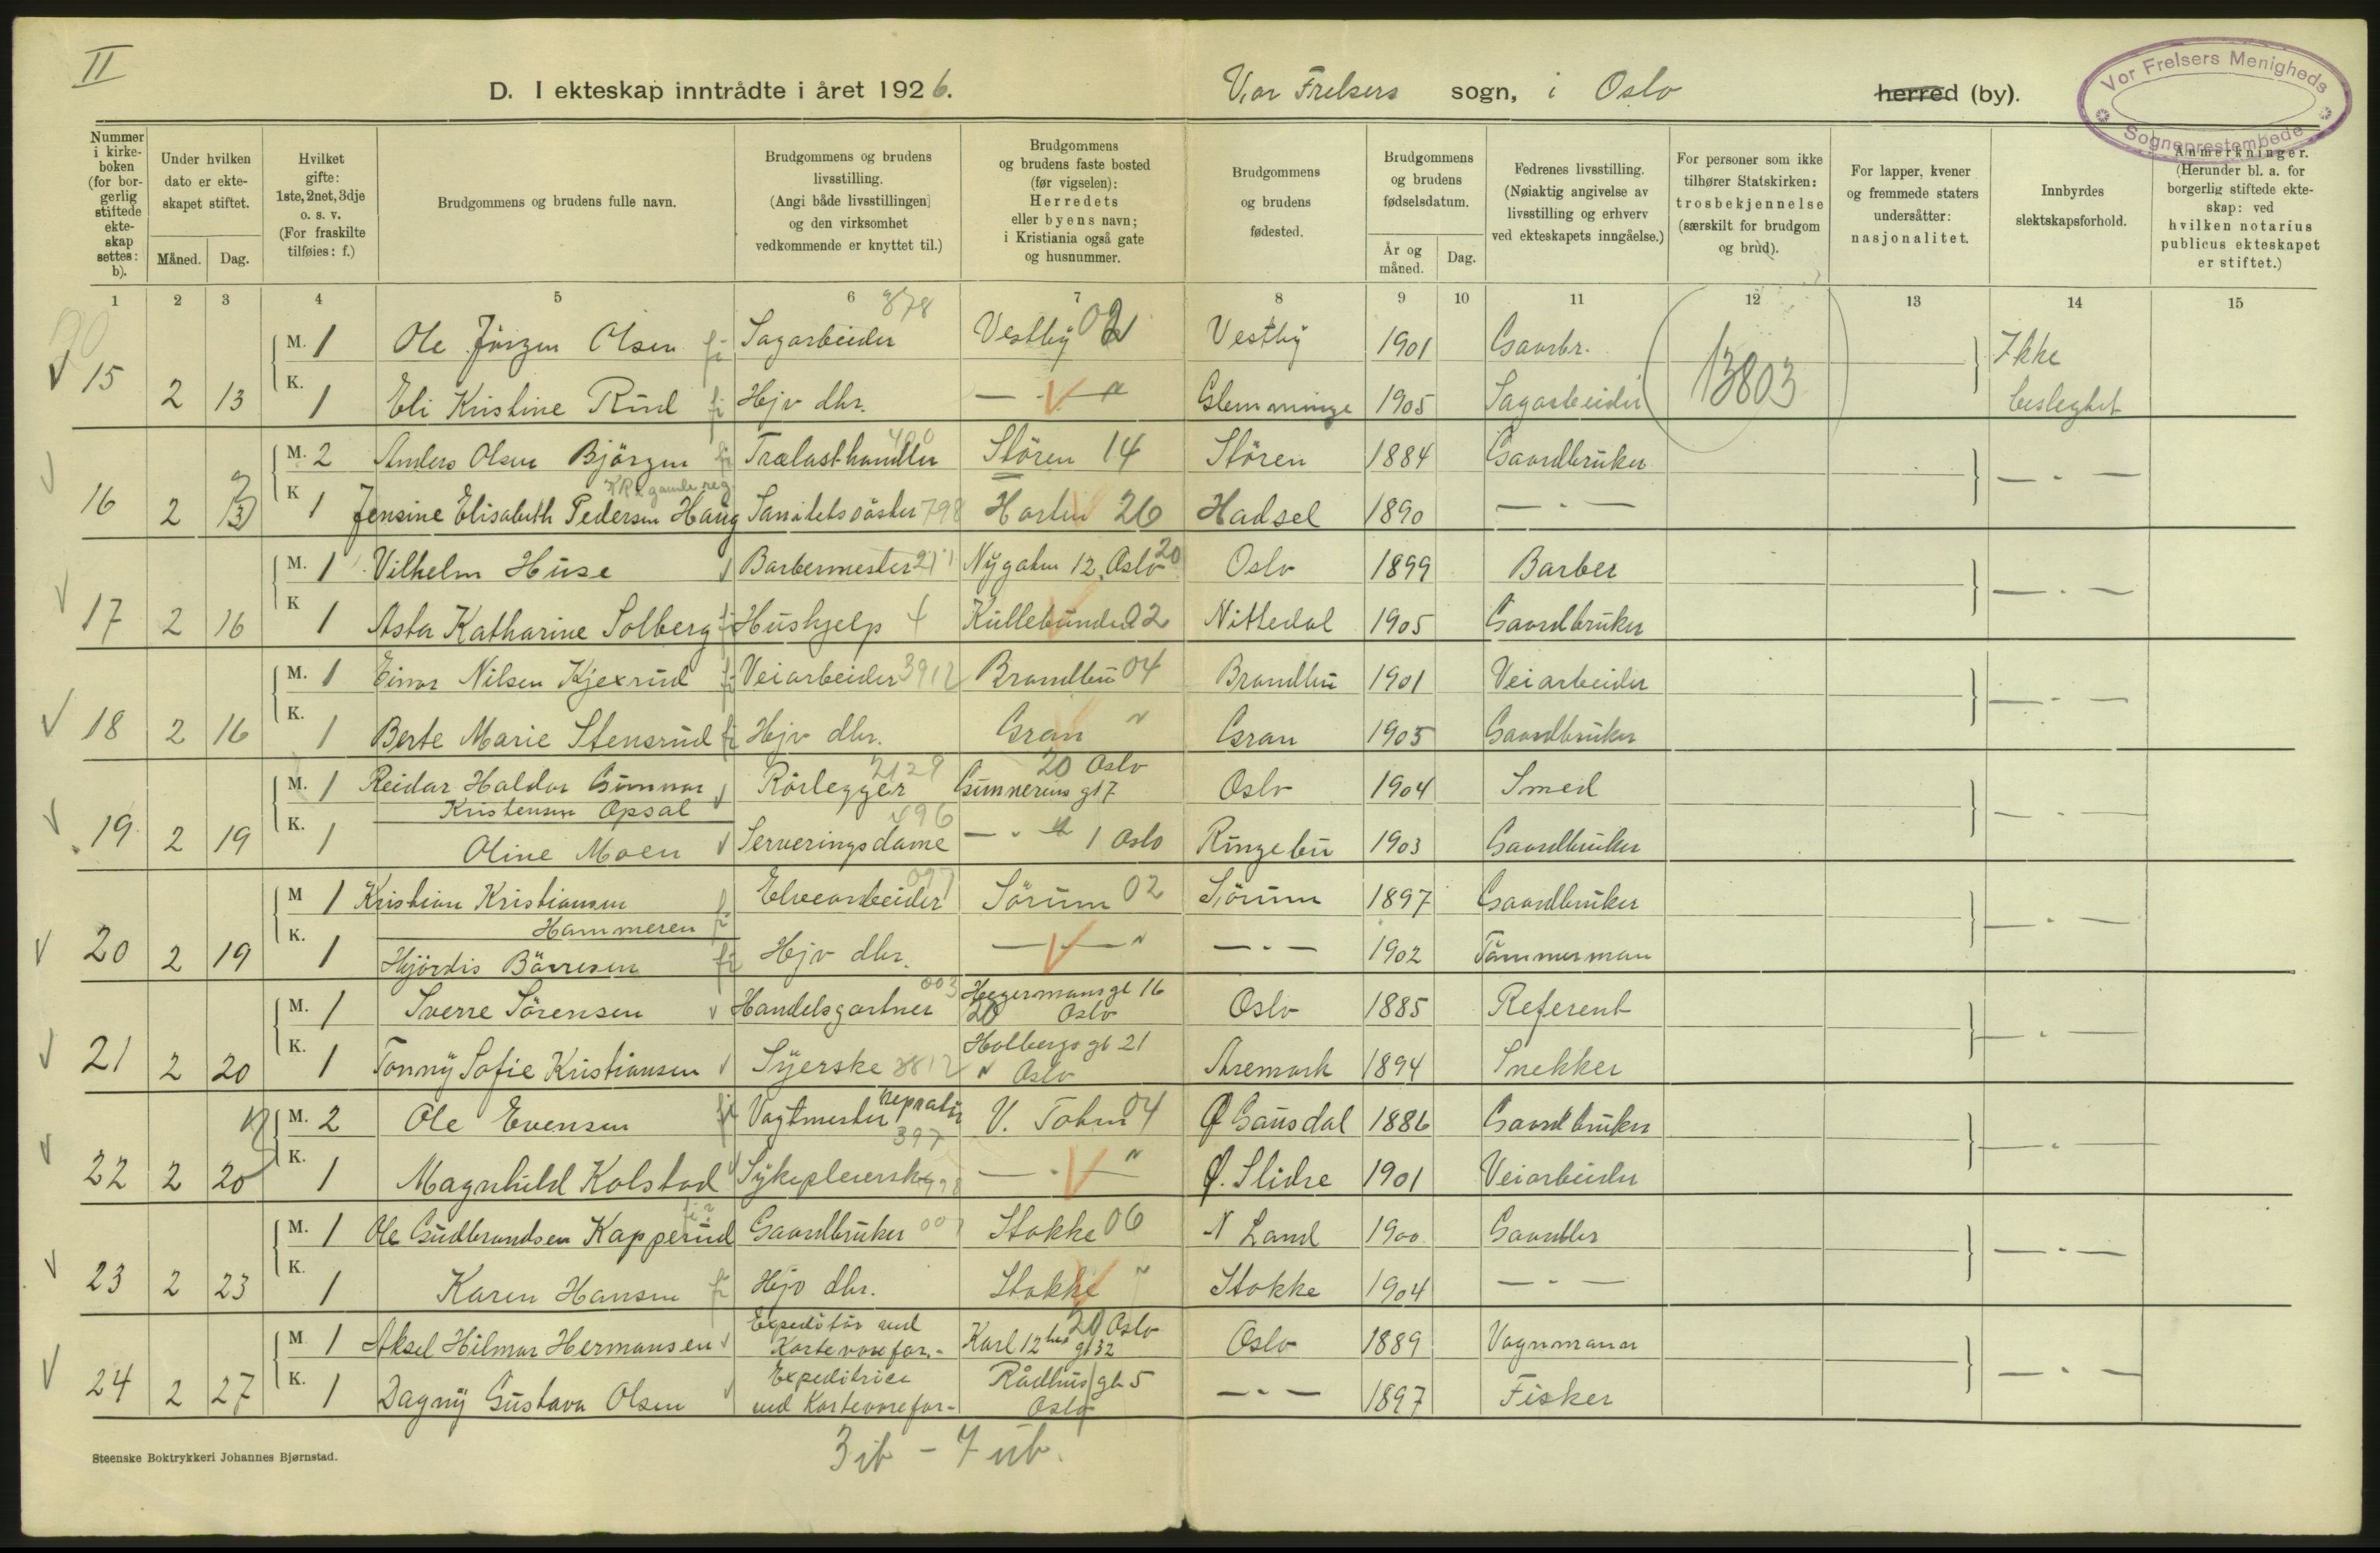 II
D. I ekteskap inntrådte i året 1926. Vor Frelsers sogn, i Oslo herred (by).
Vor Frelsers Menigheds Sogneprestembede
Nummer i kirkeboken (for borgerlig stiftede ekteskap settes: b).
Under hvilken dato er ekteskapet stiftet.
Måned. Dag.
Hvilket gifte: 1ste, 2net, 3dje o. s. v. (For fraskilte tilføies: f.)
Brudgommens og brudens fulle navn.
Brudgommens og brudens livsstilling. (Angi både livsstillingen og den virksomhet vedkommende er knyttet til.)
Brudgommens og brudens faste bosted (før vigselen): Herredets eller byens navn; i Kristiania også gate og husnummer.
Brudgommens og brudens fødested.
Brudgommens og brudens fødselsdatum.
År og måned. Dag.
Fedrenes livsstilling. (Nøiaktig angivelse av livsstilling og erhverv ved ekteskapets inngåelse.)
For personer som ikke tilhører Statskirken: trosbekjennelse (særskilt for brudgom og brud).
For lapper, kvener og fremmede staters undersåtter: nasjonalitet.
Innbyrdes slektskapsforhold.
Anmerkninger. (Herunder bl. a. for borgerlig stiftede ekteskap: ved hvilken notarius publicus ekteskapet er stiftet.)
1 2 3 4 5 6 7 8 9 10 11 12 13 14 15
M. 1 Ole Jörgen Olsen fi Sagarbeider 878 Vestby 02 Vestby 1901 Gaardbr. 13803 Ikke
15 2 13 K. 1 Eli Kristine Rud fi Hjv dhr. — " — Glemminge 1905 Sagarbeider beslegtet
M. 2 Anders Olsen Björgen Trælasthandler 400 Stören 14 Stören 1884 Gaardbruker — " —
16 2 13 K 1 Jensine Elisabeth Pedersen Haug Sanitetssöster 798 26 Hadsel 1890 — " —
M. 1 Vilhelm Huse Barbermester Nygaten 12, Oslo 20 Oslo 1899 Barber — " —
17 2 16 K 1 Asta Katharine Solberg Hushjelp 02 Nittedal 1905 Gaardbruker
M. 1 Einar Nilsen Kjexrud Veiarbeider 3912 Brandbu 04 Brandbu 1901 Veiarbeider — " —
18 2 16 K. 1 Berte Marie Stensrud fi Hjv dhr. Gran " Gran 1905 Gaardbruker
M. 1 Reidar Haldor Gunnar Kristensen Opsal Rörlegger 2129 Gunnerius gt 7 20 Oslo Oslo 1904 Smed — " —
19 2 19 K. 1 Oline Moen Serveringsdame 496 — " — 1 Oslo Ringebu 1903 Gaardbruker
M 1 Kristian Kristiansen Hammeren Elvearbeider Sörum 02 Sörum 1897 Gaardbruker — " —
20 2 19 K. 1 Hjördis Börresen fi Hjv dhr. — " — — " — 1902 Tömmerman
M. 1 Sverre Sörensen Handelsgartner 003 Hegermansgt 16 20 Oslo Oslo 1885 Referent — " —
21 2 20 K. 1 Tonny Sofie Kristiansen Syerske 3812 Holbergs gt 21 " Oslo Aremark 1894 Snekker
M. 2 Ole Evensen Vogtmester 397 04 Ø Gausdal 1886 Gaardbruker — " —
22 2 20 K. 1 Magnhild Kolstad Sykepleierske — " — Ø. Slidre 1901 Veiarbeider
M. 1 Ole Gudbrandsen Kapperud Gaardbruker 001 Stokke 06 N Land 1900 Gaardbr — " —
23 2 23 K. 1 Karen Hansen fi Hjv dhr. Stokke " Stokke 1904 — " —
M 1 Aksel Hilmar Hermansen Expeditör ved Kortevarefor.- Karl 12tes gt 32 20 Oslo Oslo 1889 Vognmann — " —
24 2 27 K. 1 Dagny Gustava Olsen Expeditrice ved Kortevarefor- Rådhus gt 5 Oslo — " — 1897 Fisker
Steenske Boktrykkeri Johannes Bjørnstad.
3 ib - 7 ub.